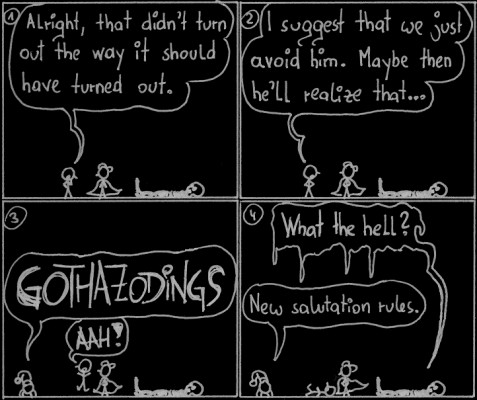 1
Alright, that didn't turn
out the way it should
have turned out.
2
I suggest that we just
avoid him. Maybe then
he'll realize that...
3
GOTHAZODINGS
AAH!
4
What the hell?
New salutation rules.